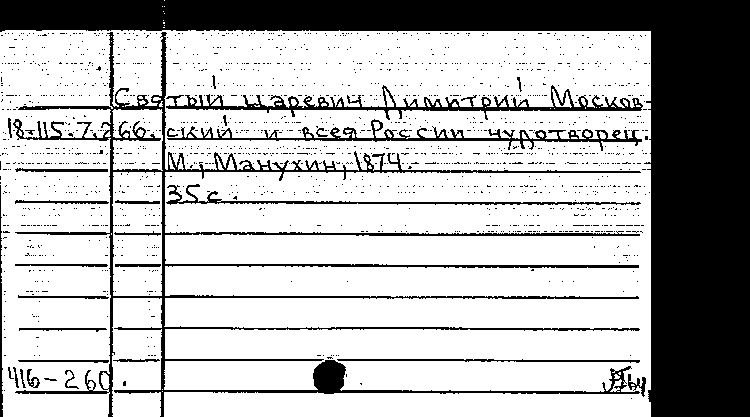 Святый царевич Димитрий Москов-
18.115.7.266. ский и всея России чудотворец.
М., Манухин, 1874.
35 с.
416-260.